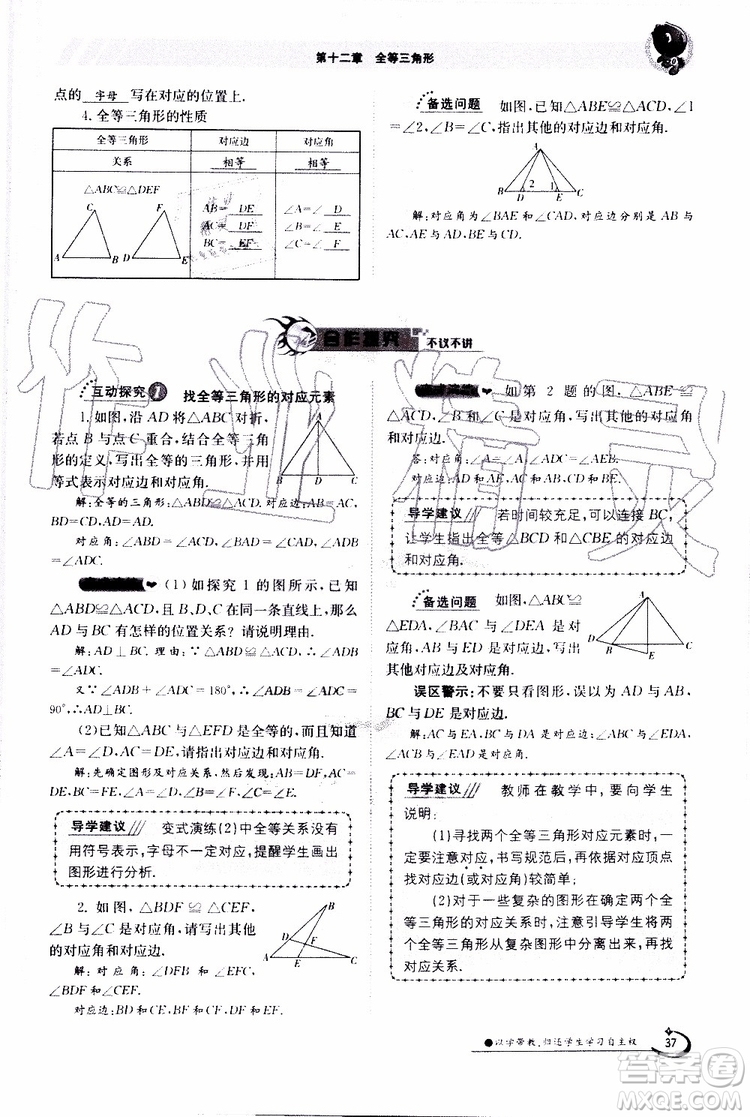 第十二章 全等三角形
点的 字母 写在对应的位置上.
4. 全等三角形的性质
全等三角形 对应边 对应角
关系 相等 相等
△ABC≌△DEF
AB= DE ∠A=∠ D
AC= DF ∠B=∠ E
BC= EF ∠C=∠ F
C F
A B D E
备选问题 如图,已知△ABE≌△ACD,∠1
=∠2,∠B=∠C,指出其他的对应边和对应角.
A
2 1
B D E C
解:对应角为∠BAE和∠CAD,对应边分别是AB与
AC,AE与AD,BE与CD.
合作探究 不议不讲
互动探究 1 找全等三角形的对应元素
1. 如图,沿AD将△ABC对折,
若点B与点C重合,结合全等三角
形的定义,写出全等的三角形,并用
等式表示对应边和对应角.
A
B D C
解:全等的三角形:△ABD≌△ACD.对应边:AB=AC,
BD=CD,AD=AD.
对应角:∠B=∠C,∠BAD=∠CAD,∠ADB
=∠ADC.
(1)如探究1的图所示,已知
△ABD≌△ACD,且B、D、C在同一条直线上,那么
AD与BC有怎样的位置关系?请说明理由.
解:AD⊥BC.理由:∵△ABD≌△ACD,∴∠ADB
=∠ADC.
又∵∠ADB+∠ADC=180°,∴∠ADB=∠ADC=
90°,∴AD⊥BC.
(2)已知△ABC与△EFD是全等的,而且知道
∠A=∠D,AC=DE,请指出其他的对应边和对应角.
解:先确定图形及对应关系,然后发现:∠B=∠F,AB=
DF,BC=FE,∠ACB=∠DEF.
导学建议 变式演练(2)中全等关系没有
用符号表示,字母不一定对应,提醒学生画出
图形进行分析.
2. 如图,△BDF≌△CEF,
∠B与∠C是对应角,请写出其他
的对应角和对应边.
B
D E
F
A C
解:对应角:∠DFB和∠EFC,
∠BDF和∠CEF.
对应边:BD和CE,BF和CF,DF和EF.
如第2题的图,△ABE≌
△ACD,AB与AC是对应边,写出其他的对应角
和对应边.
答:对应角:∠A和∠A,∠B和∠C,∠ADC和∠AEB.
对应边:AD和AE,AC和AB,CD和BE.
导学建议 若时间较充足,可以连接BC,
让学生指出全等△BCD和△CBE的对应边
和对应角.
备选问题 如图,△ABC≌
△EDA,∠BAC与∠DEA是对
应角,AB与ED是对应边,写出
其他对应边及对应角.
A
B D C
E
误区警示:不要只看图形,误以为AD与AD,
BC与DE是对应边.
解:AC与EA,BC与DA是对应边;∠ABC与∠EDA,
∠ACB与∠EAD是对应角.
导学建议 教师在教学中,要向学生
说明:
(1)寻找两个全等三角形对应元素时,一
定要注意对应,书写规范后,可以根据对应顶点
找对应边(或对应角)比较简单.
(2)对于一些复杂的图形在确定两个全
等三角形的对应关系时,注意引导学生将这
两个全等三角形从复杂图形中分离出来,再找
对应关系.
●以学带教,归还学生学习自主权 37
答案圈
MXQE.COM